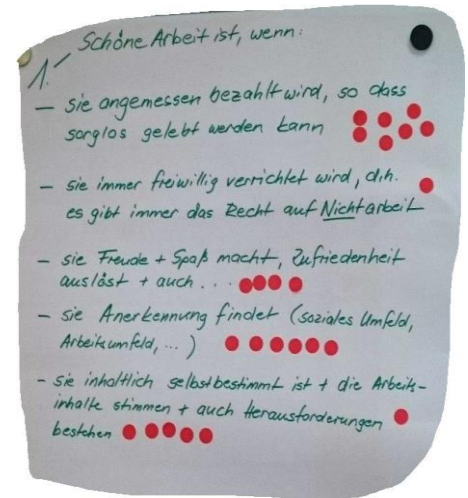 1. Schöne Arbeit ist, wenn:
– sie angemessen bezahlt wird, so dass
sorglos gelebt werden kann
– sie immer freiwillig verrichtet wird, d.h.
es gibt immer das Recht auf Nichtarbeit
– sie Freude + Spaß macht, Zufriedenheit
auslöst + auch ...
– sie Anerkennung findet (soziales Umfeld,
Arbeitsumfeld, ...)
– sie inhaltlich selbstbestimmt ist + die Arbeits-
inhalte stimmen + auch Herausforderungen
bestehen